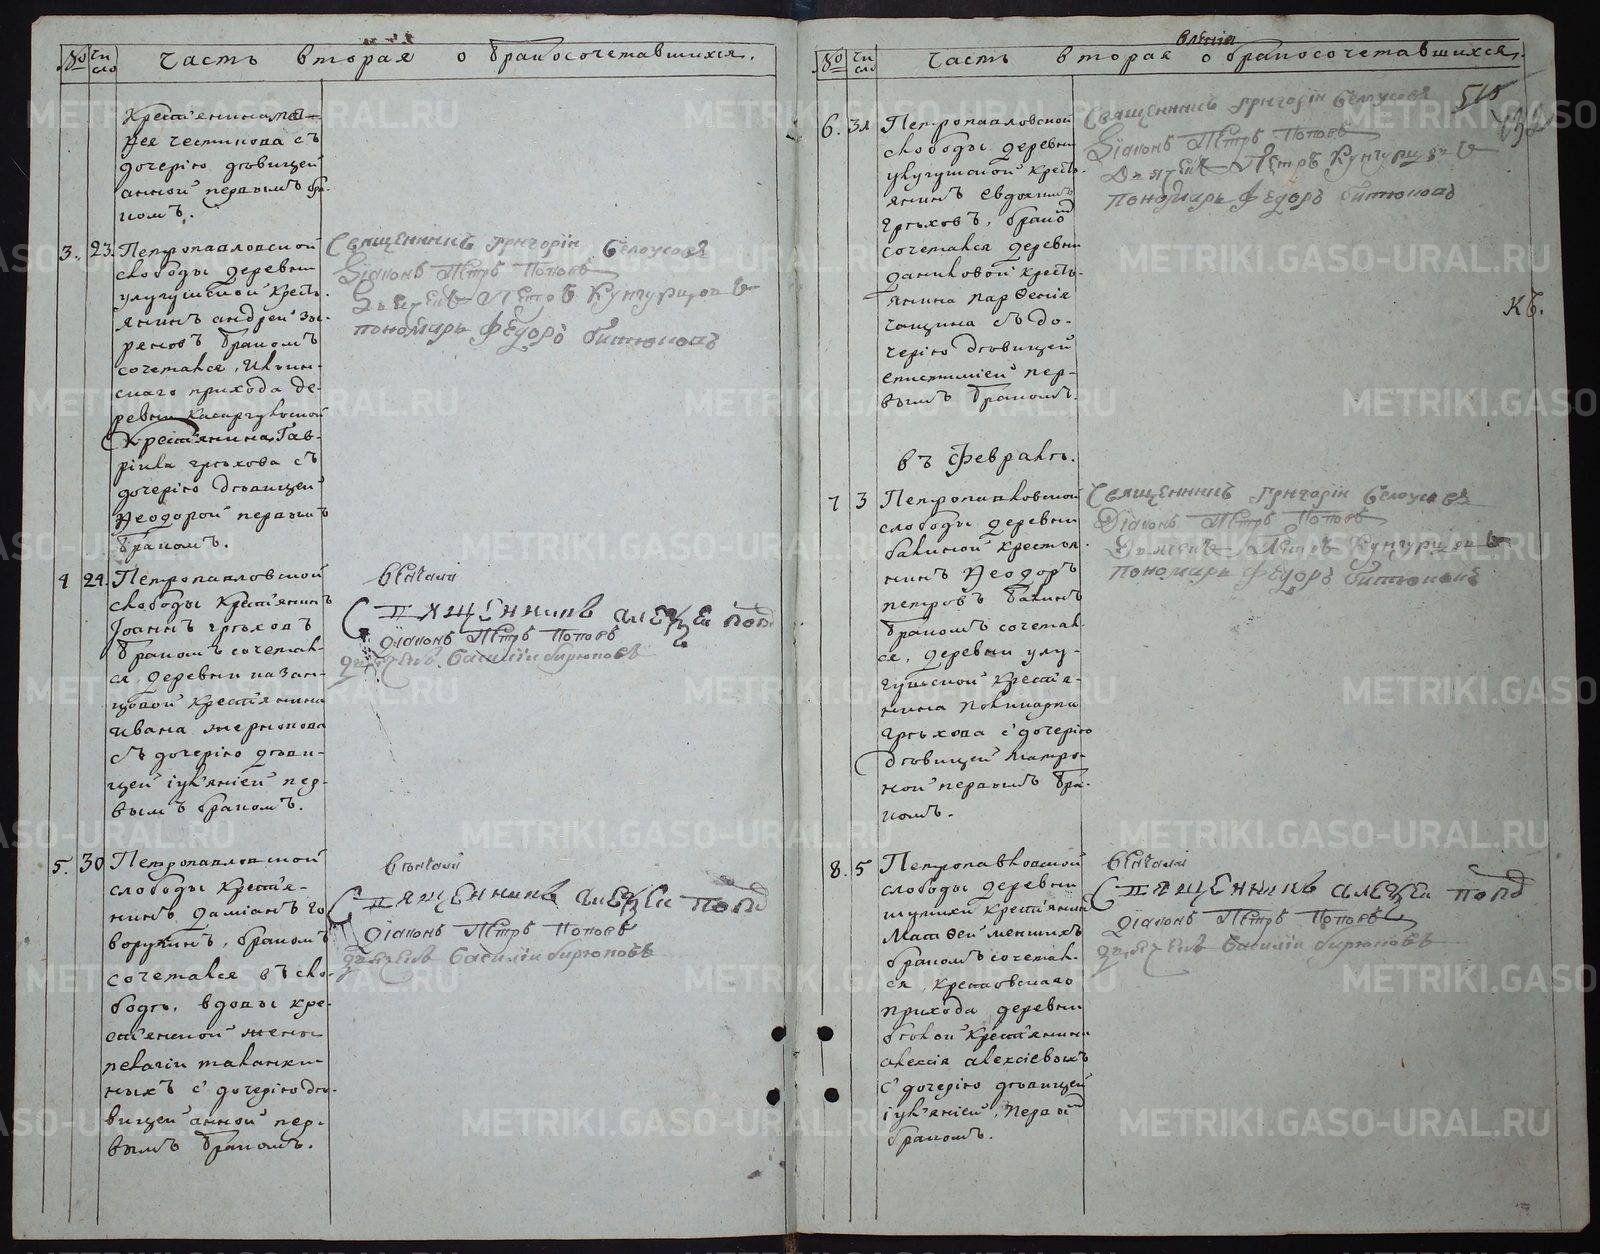 № Число Часть вторая о бракосочетавшихся.
Крестьянина мат-
фея честикова съ
дочерію дѣвицей
анной первымъ бра-
комъ.
3. 23. Петропавловской
слободы деревни
улугушской кресть-
янинъ андрей зы-
рянов ъ бракомъ
сочетался, Ильин-
скаго прихода де-
ревни касаргульской
Крестьянина Гав-
ріила грѣхова съ
дочерію дѣвицей
Ѳеодорой первымъ
бракомъ.
Священникъ григорій бѣлоусовъ
Діаконъ Петръ Поповъ
Дьячекъ Петръ Кунгурцовъ
пономарь Федоръ битюковъ
4 24. Петропавловской
слободы крестьянинъ
Іоаннъ грѣховъ
бракомъ сочетал-
ся, деревни казан-
цовой крестьянина
ивана
съ дочерію дѣви-
цей іуліаніей пер-
вымъ бракомъ.
вѣнчалъ
Священникъ алеѯей попо
діаконъ Петръ Поповъ
дьячекъ василій бирюковъ
5. 30 Петропавловской
слободы крестья-
нинъ даміанъ го
ворухинъ, бракомъ
сочетался въ сло-
бодѣ, вдовы кре-
стьянской жены
пелагіи таланки-
ныхъ с дочерію дѣ-
вицей анной пер-
вымъ бракомъ.
вѣнчалъ
Священникъ алеѯей попо
Діаконъ Петръ Поповъ
дьячекъ василій бирюковъ
№ Число Часть вторая о бракосочетавшихся.
510
6. 31 Петропавловской
слободы деревни
улугушской кресть-
янинъ евдокимъ
грѣховъ, бракомъ
сочетался деревни
даниковой кресть-
янина парѳенія
гащина съ до-
черію дѣвицей
епистиміей пер-
вымъ бракомъ.
Священникъ григорій бѣлоусовъ
Діаконъ Петръ Поповъ
Дьячекъ Петръ Кунгурцовъ
пономарь Федоръ битюковъ
къ.
въ Февралѣ.
7 3 Петропавловской
слободы деревни
бакиной крестья
нинъ Ѳеодоръ
петровъ бакинъ
бракомъ сочетал-
ся, деревни улу-
гушской крестья-
нина поликарпа
грѣхова с дочерію
дѣвицей матро-
ной первымъ бра-
комъ.
Священникъ григорій бѣлоусовъ
Діаконъ Петръ Поповъ
Дьячекъ Петръ Кунгурцовъ
пономарь Федоръ битюковъ
8. 5 Петропавловской
слободы деревни
шупихи крестьянинъ
Матѳей меншихъ
бракомъ сочетал-
ся, крестовскаго
прихода деревни
бѣлой крестьянина
алексія алексіевыхъ
с дочерію дѣвицей
іуліаніей, первы
бракомъ.
вѣнчалъ
Священникъ алеѯей попо
діаконъ Петръ Поповъ
дьячекъ василій бирюковъ
METRIKI.GASO-URAL.RU